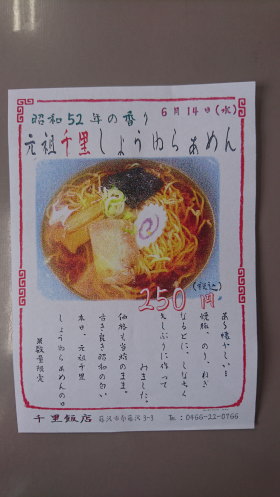 昭和52年の香り
6月14日(水)
元祖千里しょうゆらぁめん
250円
(税込)
あ〜懐かしい…
焼豚、のり、ねぎ
なるとに、しなちく
久しぶりに作って
みました。
価格も当時のまま。
古き良き昭和の匂い
本日、元祖千里
しょうゆらぁめんの日
※数量限定
千里飯店
TEL:0466-22-0766